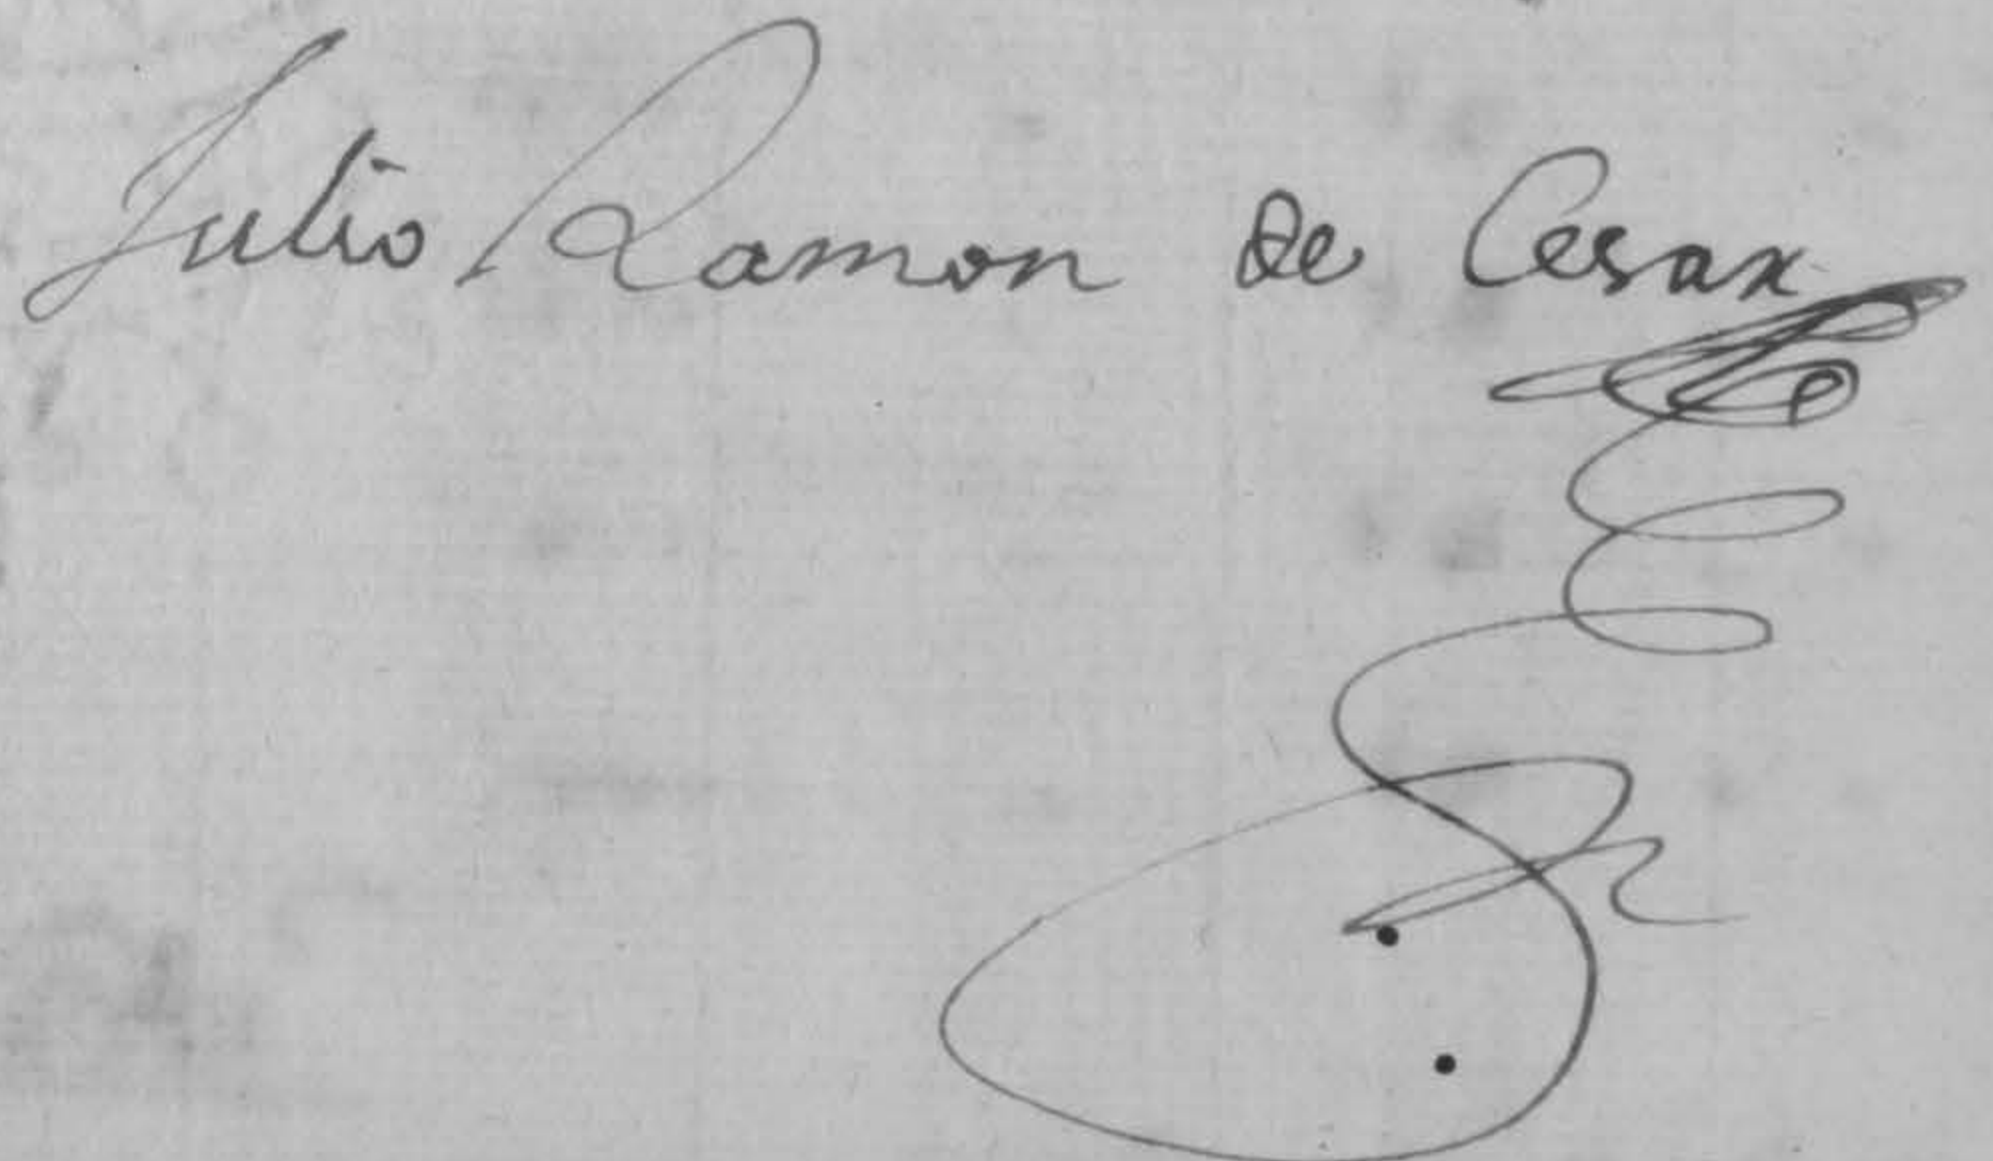 Julio Ramon de Cesar